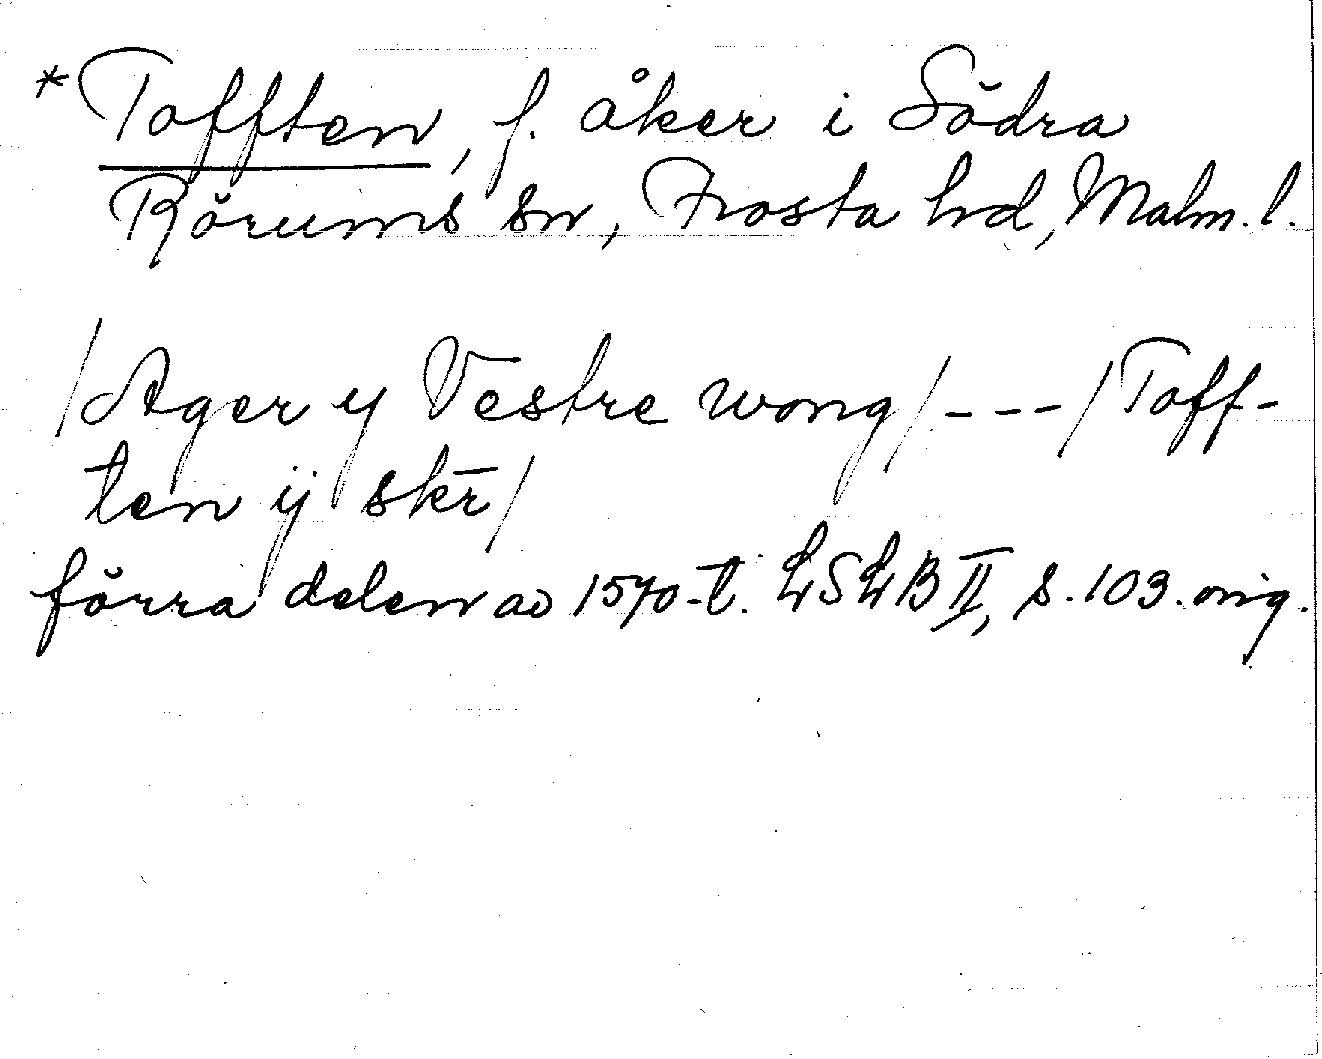 *Tofften, f. åker i Södra
Rörums sn, Frosta hd, Malm. l.
/Ager y Vestre wong/---/Toff-
ten ij skr̄/
förra delen av 1570-t. LSLB II, s. 103. orig.